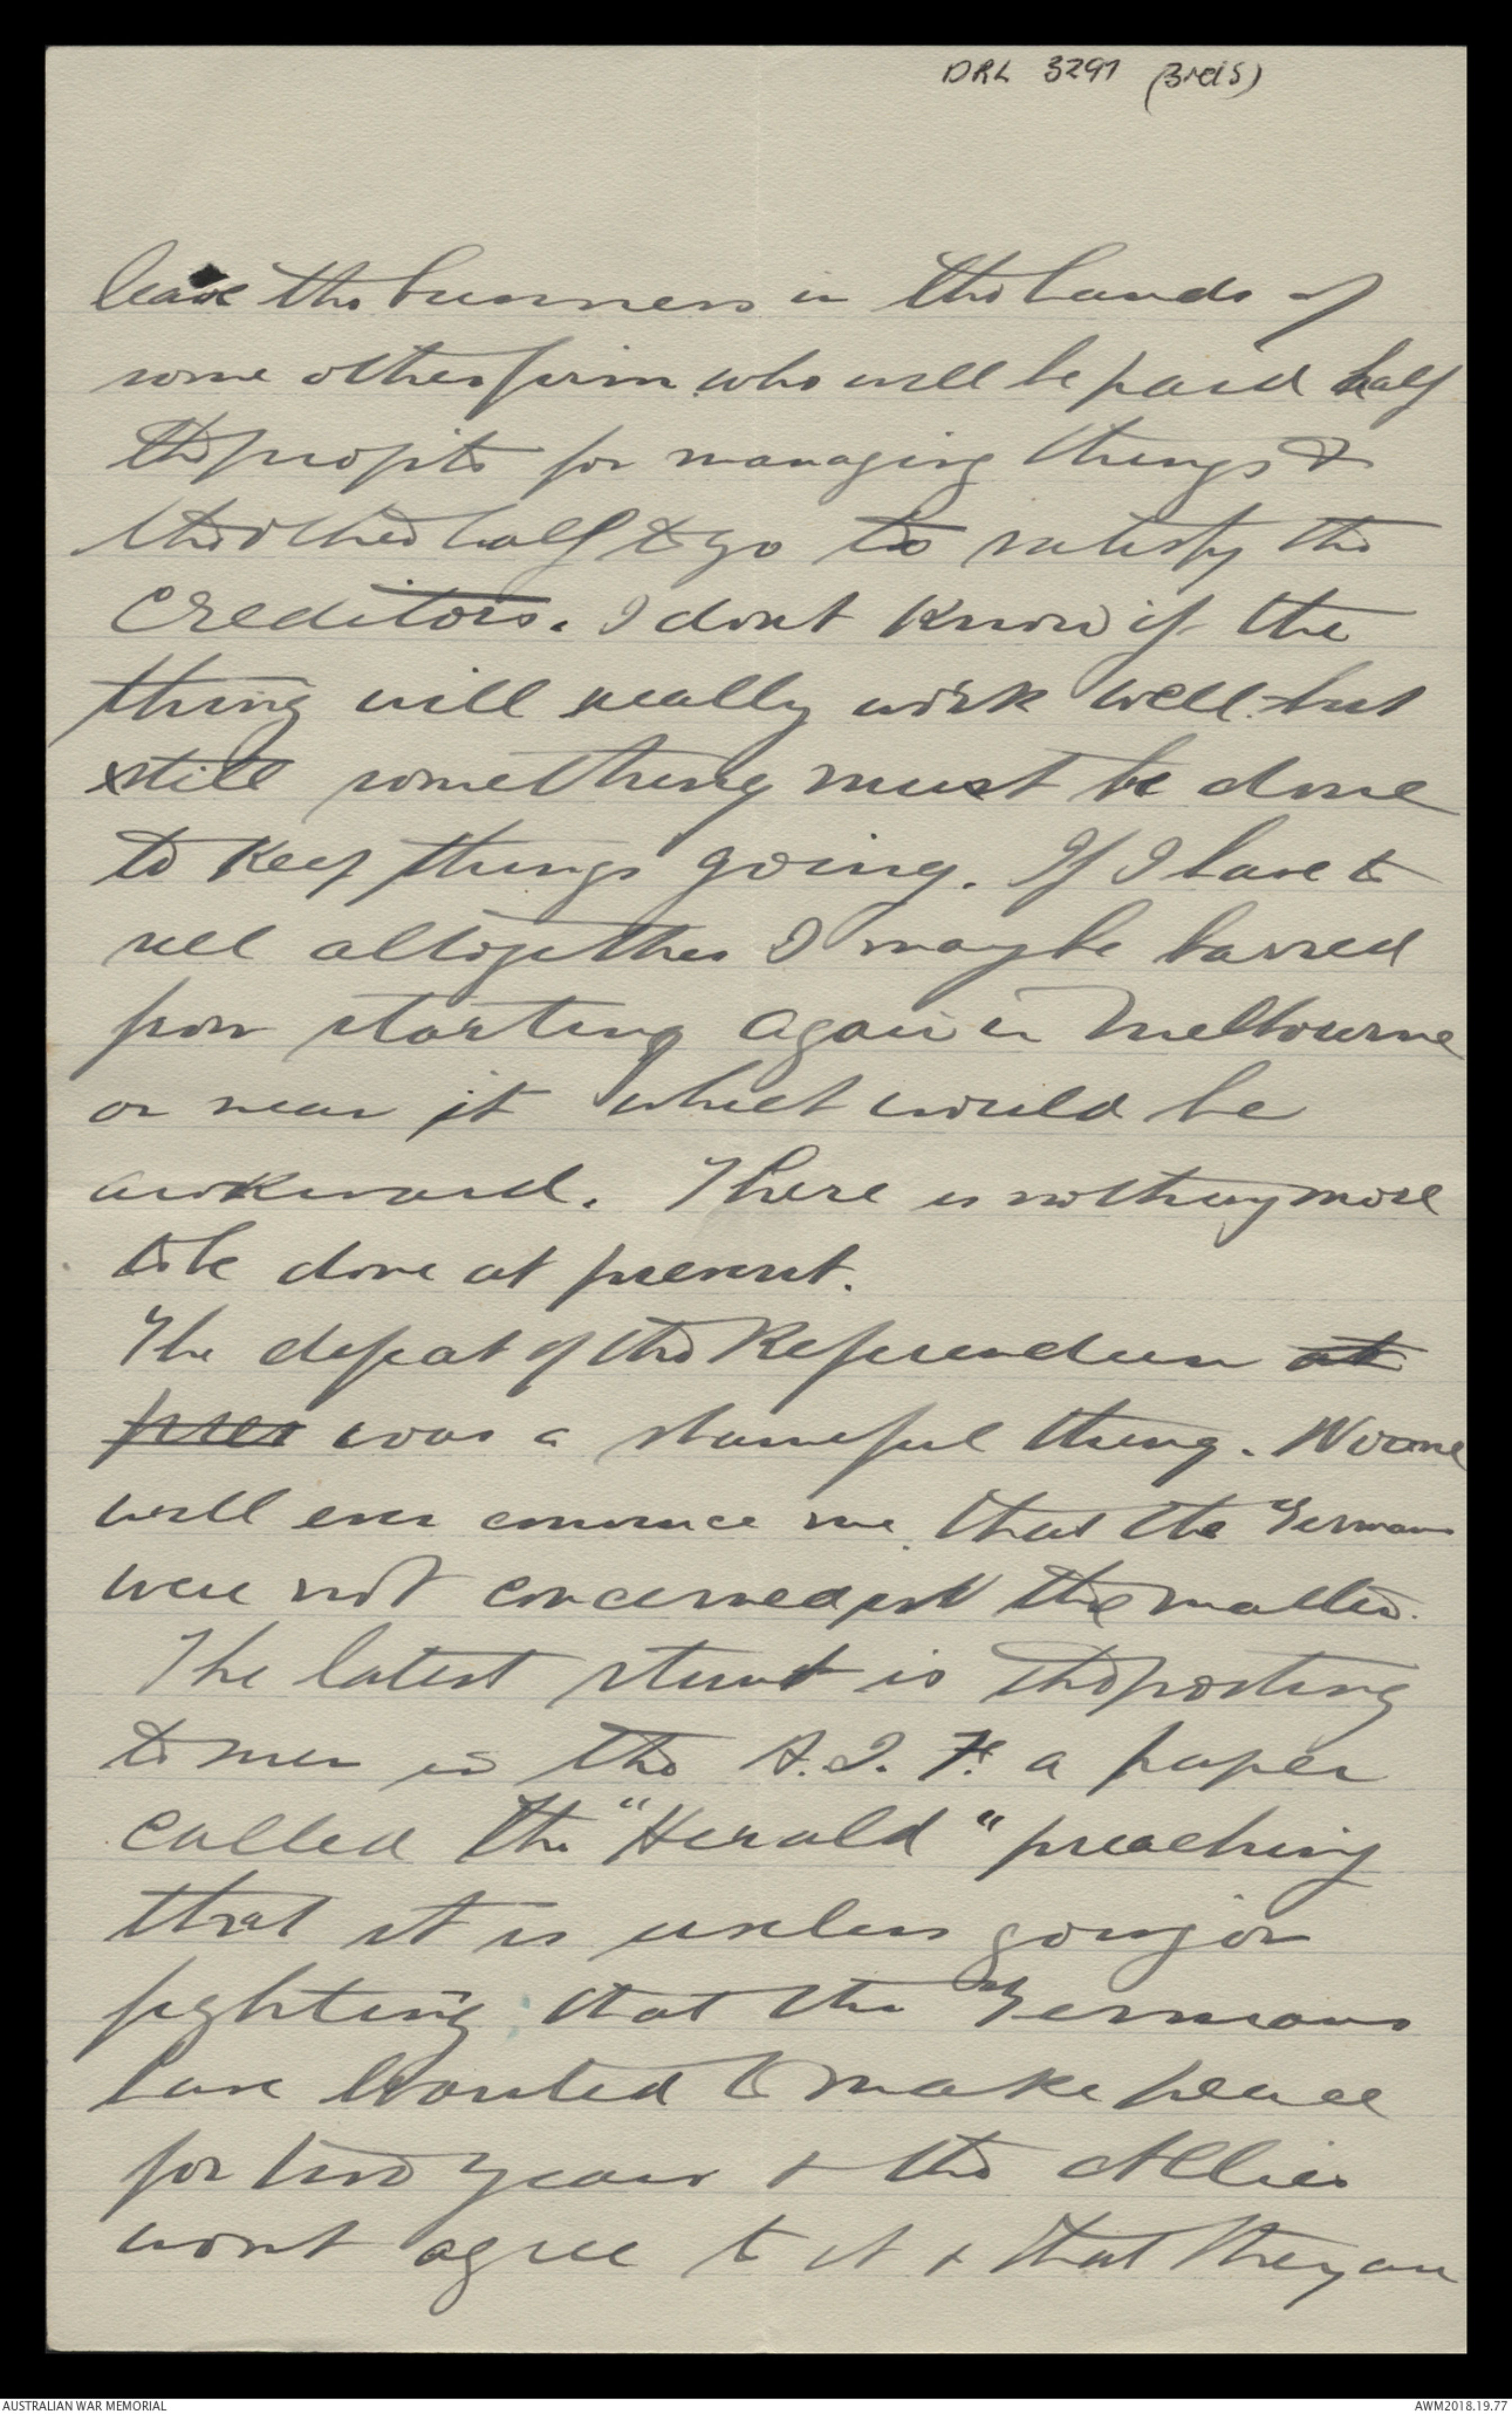 DRL 3297 (3rd S)
leave the business in the hands of
some other firm who will be paid half
the profits for managing things &
the other half to go to satisfy the
Creditors. I dont know if the
thing will really work well but
still something must be done
to keep things going. If I have to
sell altogether I may be barred
from starting again in Melbourne
or near it which would be
awkward. There is nothing more
to be done at present.
The defeat of the Referendum at
pres was a shameful thing. No one
will ever convince me that the Germans
were not concerned in the matter.
The latest stunt is the posting
to men in the A.I.F. a paper
called the "Herald" preaching
that it is useless going on
fighting that the Germans
have wanted to make peace
for two years & the Allies
wont agree to it & that they are
AUSTRALIAN WAR MEMORIAL
AWM2018.19.77